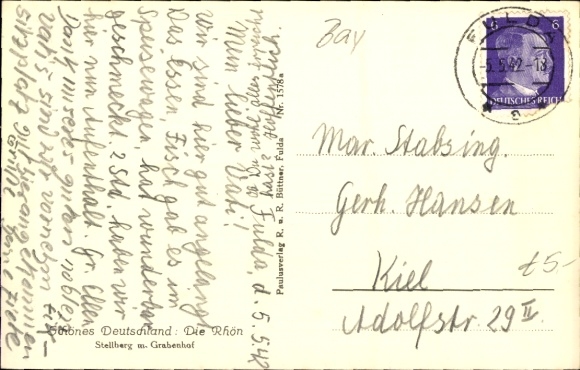 Fulda, d. 5. 5. 42
Mein lieber Vati!
Wir sind hier gut anglangt
Das Essen, Fisch gab es im
Speisewagen, hat wunderbar
geschmeckt. 2 Std. haben wir
hier nun Aufenthalt. Gr. Ellen
Dank unseres guten
sind wir vornehm
Schönes Deutschland: Die Rhön
Stellberg m. Grabenhof
Paulusverlag R. u. R. Büttner, Fulda Nr. 1578a
Bay
FULDA
-5.5.42-18
c
6
DEUTSCHES REICH
Mar. Stabsing.
Gerh. Hansen
Kiel
Adolfstr. 29 II
t5-